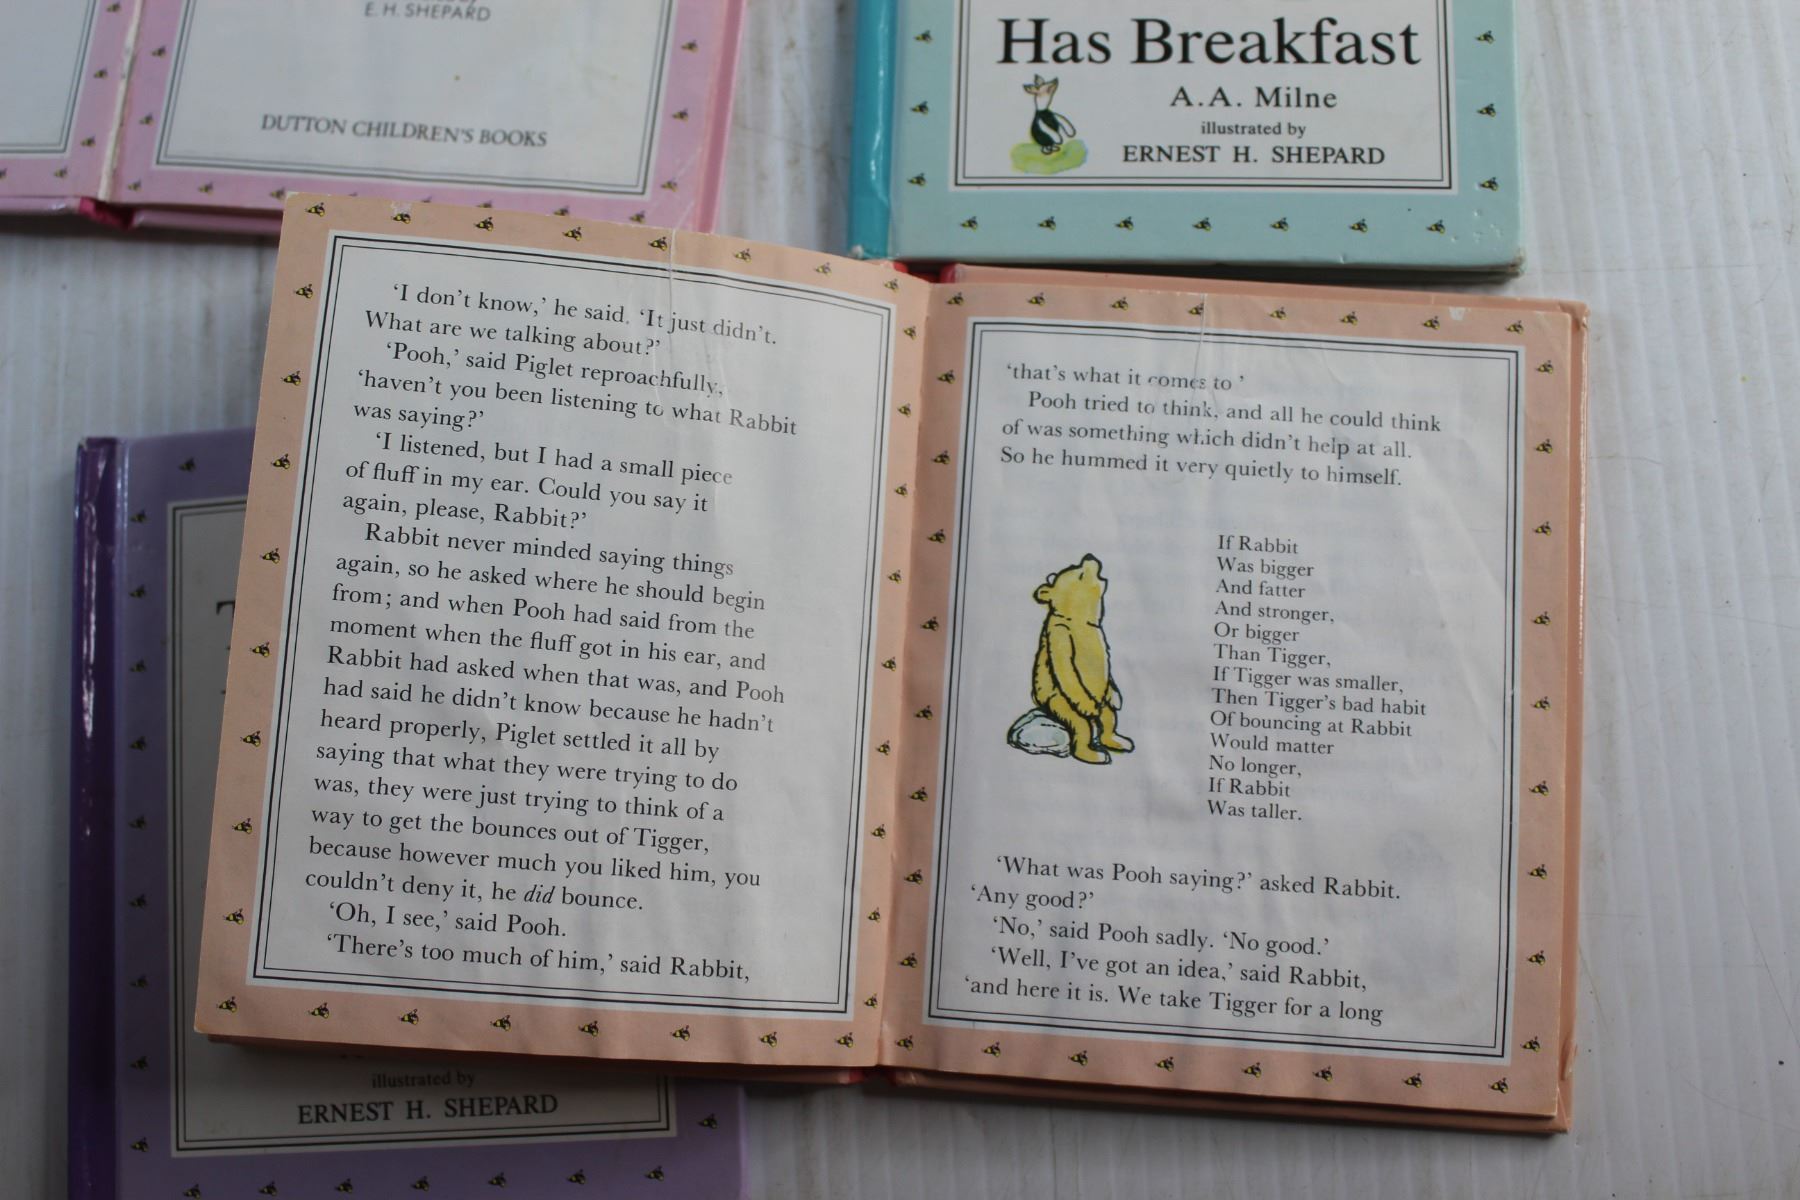 E. H. SHEPARD
DUTTON CHILDREN'S BOOKS
Has Breakfast
A.A. Milne
illustrated by
ERNEST H. SHEPARD
‘I don’t know,’ he said. ‘It just didn’t.
What are we talking about?’
‘Pooh,’ said Piglet reproachfully,
‘haven’t you been listening to what Rabbit
was saying?’
‘I listened, but I had a small piece
of fluff in my ear. Could you say it
again, please, Rabbit?’
Rabbit never minded saying things
again, so he asked where he should begin
from; and when Pooh had said from the
moment when the fluff got in his ear, and
Rabbit had asked when that was, and Pooh
had said he didn’t know because he hadn’t
heard properly, Piglet settled it all by
saying that what they were trying to do
was, they were just trying to think of a
way to get the bounces out of Tigger,
because however much you liked him, you
couldn’t deny it, he did bounce.
‘Oh, I see,’ said Pooh.
‘There’s too much of him,’ said Rabbit,
‘that’s what it comes to ’
Pooh tried to think, and all he could think
of was something which didn’t help at all.
So he hummed it very quietly to himself.
If Rabbit
Was bigger
And fatter
And stronger,
Or bigger
Than Tigger,
If Tigger was smaller,
Then Tigger’s bad habit
Of bouncing at Rabbit
Would matter
No longer,
If Rabbit
Was taller.
‘What was Pooh saying?’ asked Rabbit.
‘Any good?’
‘No,’ said Pooh sadly. ‘No good.’
‘Well, I’ve got an idea,’ said Rabbit,
‘and here it is. We take Tigger for a long
illustrated by
ERNEST H. SHEPARD